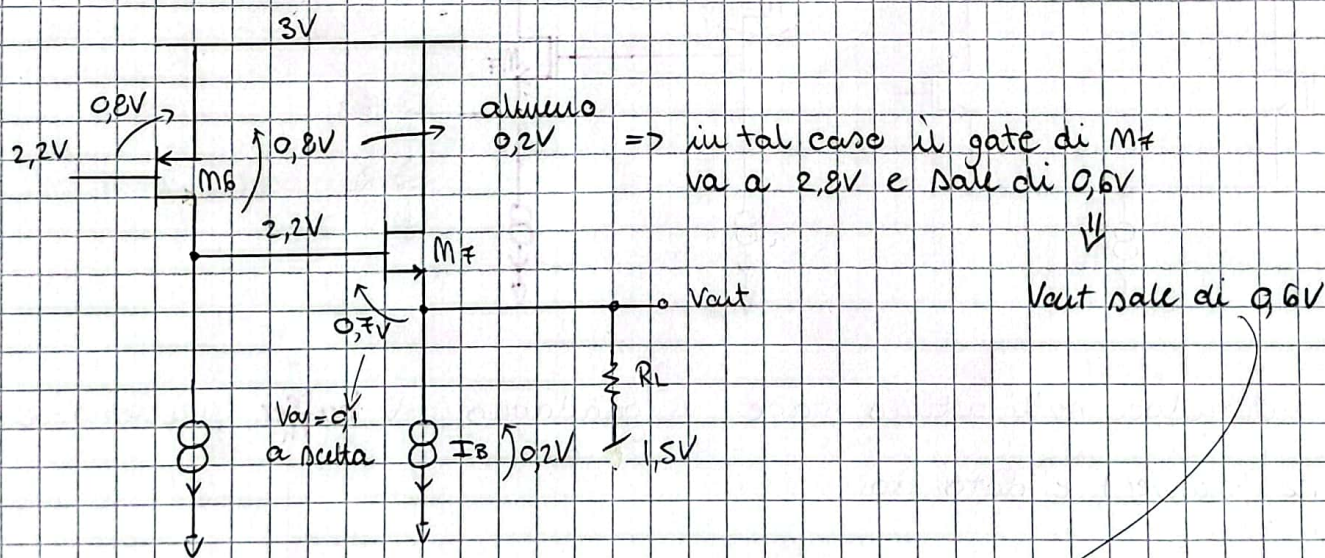 3V
0,8V
2,2V
M6
0,8V
almeno
0,2V
=> in tal caso il gate di M7
va a 2,8V e sale di 0,6V
⇓
Vout sale di 0,6V
2,2V
M7
0,7V
Vout
RL
1,5V
Vov=0,1
a scelta
IB
0,2V